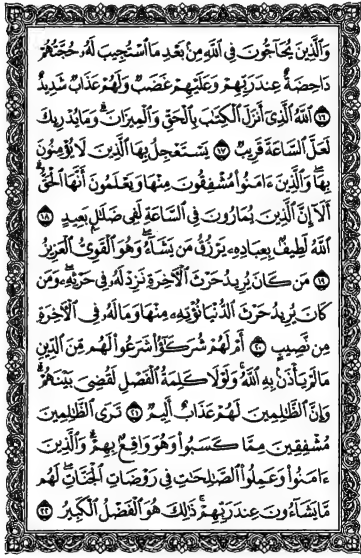 وَٱلَّذِينَ يُحَآجُّونَ فِى ٱللَّهِ مِنۢ بَعْدِ مَا ٱسْتُجِيبَ لَهُۥ حُجَّتُهُمْ
دَاحِضَةٌ عِندَ رَبِّهِمْ وَعَلَيْهِمْ غَضَبٌ وَلَهُمْ عَذَابٌ شَدِيدٌ
١٦ ٱللَّهُ ٱلَّذِىٓ أَنزَلَ ٱلْكِتَٰبَ بِٱلْحَقِّ وَٱلْمِيزَانَ ۗ وَمَا يُدْرِيكَ
لَعَلَّ ٱلسَّاعَةَ قَرِيبٌ ١٧ يَسْتَعْجِلُ بِهَا ٱلَّذِينَ لَا يُؤْمِنُونَ
بِهَا ۖ وَٱلَّذِينَ ءَامَنُوا۟ مُشْفِقُونَ مِنْهَا وَيَعْلَمُونَ أَنَّهَا ٱلْحَقُّ ۗ
أَلَآ إِنَّ ٱلَّذِينَ يُمَارُونَ فِى ٱلسَّاعَةِ لَفِى ضَلَٰلٍۭ بَعِيدٍ ١٨
ٱللَّهُ لَطِيفٌۢ بِعِبَادِهِۦ يَرْزُقُ مَن يَشَآءُ ۖ وَهُوَ ٱلْقَوِىُّ ٱلْعَزِيزُ
١٩ مَن كَانَ يُرِيدُ حَرْثَ ٱلْءَاخِرَةِ نَزِدْ لَهُۥ فِى حَرْثِهِۦ ۖ وَمَن
كَانَ يُرِيدُ حَرْثَ ٱلدُّنْيَا نُؤْتِهِۦ مِنْهَا وَمَا لَهُۥ فِى ٱلْءَاخِرَةِ
مِن نَّصِيبٍ ٢٠ أَمْ لَهُمْ شُرَكَٰٓؤُا۟ شَرَعُوا۟ لَهُم مِّنَ ٱلدِّينِ
مَا لَمْ يَأْذَنۢ بِهِ ٱللَّهُ ۚ وَلَوْلَا كَلِمَةُ ٱلْفَصْلِ لَقُضِىَ بَيْنَهُمْ ۗ
وَإِنَّ ٱلظَّٰلِمِينَ لَهُمْ عَذَابٌ أَلِيمٌ ٢١ تَرَى ٱلظَّٰلِمِينَ
مُشْفِقِينَ مِمَّا كَسَبُوا۟ وَهُوَ وَاقِعٌۢ بِهِمْ ۗ وَٱلَّذِينَ
ءَامَنُوا۟ وَعَمِلُوا۟ ٱلصَّٰلِحَٰتِ فِى رَوْضَاتِ ٱلْجَنَّاتِ ۖ لَهُم
مَّا يَشَآءُونَ عِندَ رَبِّهِمْ ۚ ذَٰلِكَ هُوَ ٱلْفَضْلُ ٱلْكَبِيرُ ٢٢